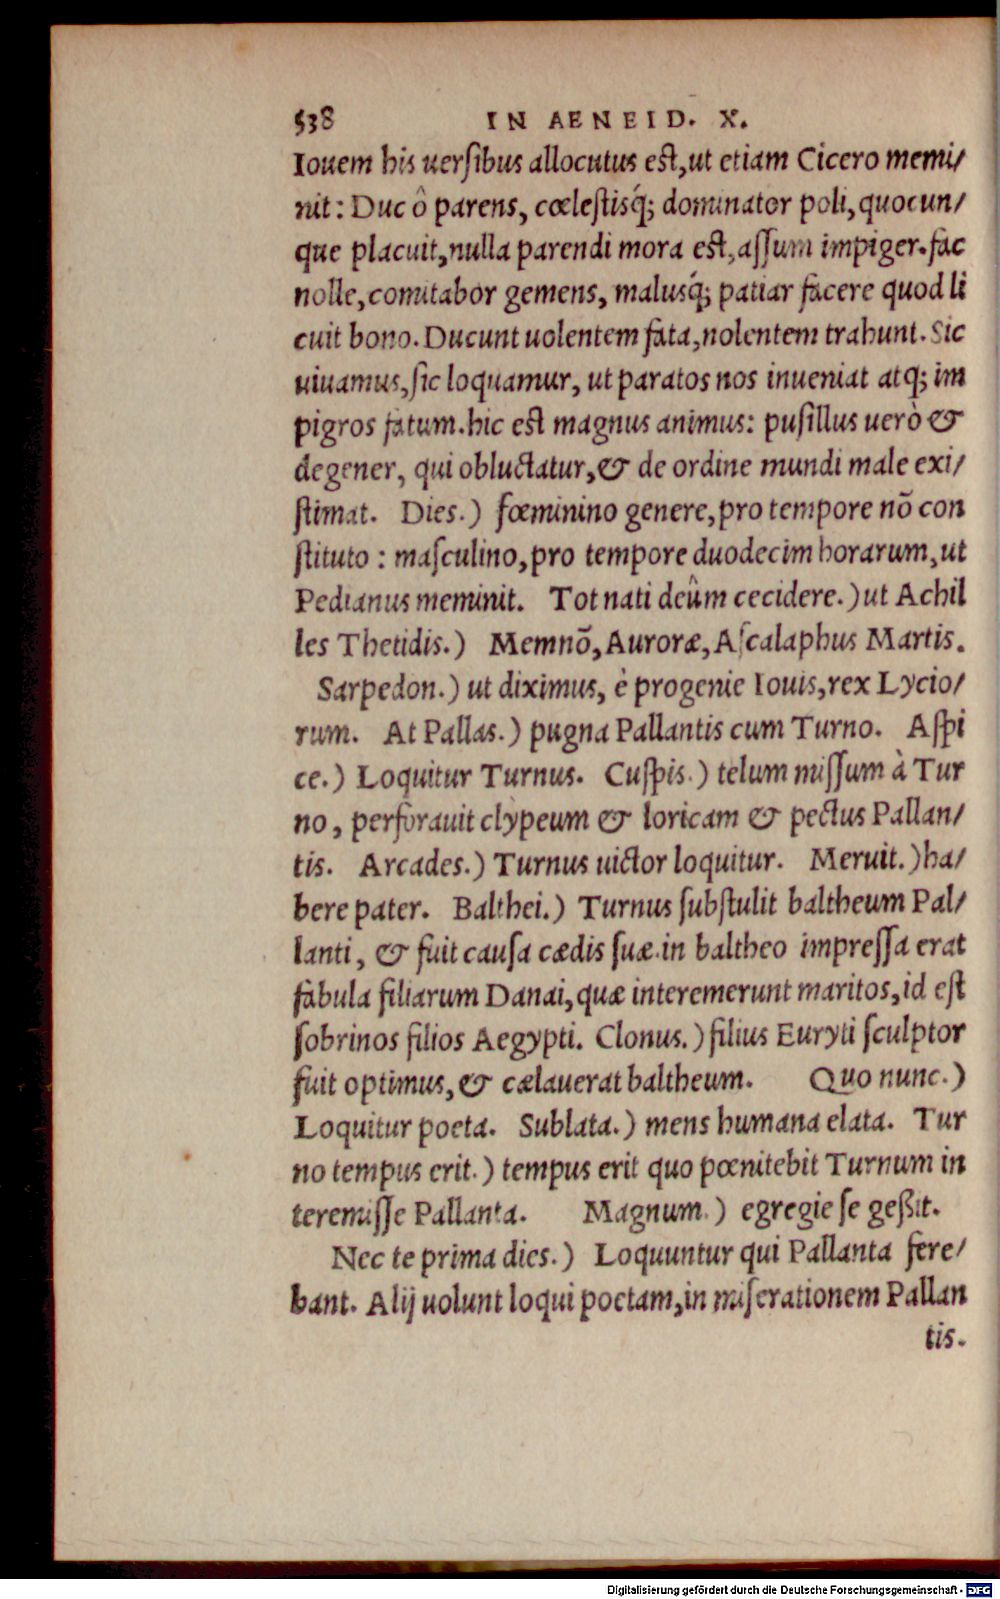 538 IN AENEID. X.
Iouem his uersibus allocutus est, ut etiam Cicero memi/
nit: Duc ô parens, cœlestisq́; dominator poli, quocun/
que placuit, nulla parendi mora est, assum impiger. fac
nolle, comitabor gemens, malusq́; patiar facere quod li
cuit bono. Ducunt uolentem fata, nolentem trahunt. Sic
uiuamus, sic loquamur, ut paratos nos inueniat atq; im
pigros fatum. hic est magnus animus: pusillus uerò &
degener, qui obluctatur, & de ordine mundi male exi/
stimat. Dies.) fœminino genere, pro tempore nõ con
stituto: masculino, pro tempore duodecim horarum, ut
Pedianus meminit. Tot nati deûm cecidere.) ut Achil
les Thetidis.) Memnõ, Auroræ, Ascalaphus Martis.
Sarpedon.) ut diximus, è progenie Iouis, rex Lycio/
rum. At Pallas.) pugna Pallantis cum Turno. Aspi
ce.) Loquitur Turnus. Cuspis.) telum missum à Tur
no, perforauit clypeum & loricam & pectus Pallan/
tis. Arcades.) Turnus uictor loquitur. Meruit.) ha/
bere pater. Balthei.) Turnus substulit baltheum Pal/
lanti, & fuit causa cædis suæ. in baltheo impressa erat
fabula filiarum Danai, quæ interemerunt maritos, id est
sobrinos filios Aegypti. Clonus.) filius Euryti sculptor
fuit optimus, & cælauerat baltheum. Quo nunc.)
Loquitur poeta. Sublata.) mens humana elata. Tur
no tempus erit.) tempus erit quo pœnitebit Turnum in
teremisse Pallanta. Magnum.) egregie se geßit.
Nec te prima dies.) Loquuntur qui Pallanta fere/
bant. Alij uolunt loqui poetam, in miserationem Pallan
tis.
Digitalisierung gefördert durch die Deutsche Forschungsgemeinschaft - DFG